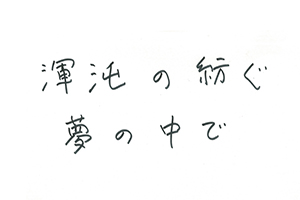 渾沌の紡ぐ
夢の中で